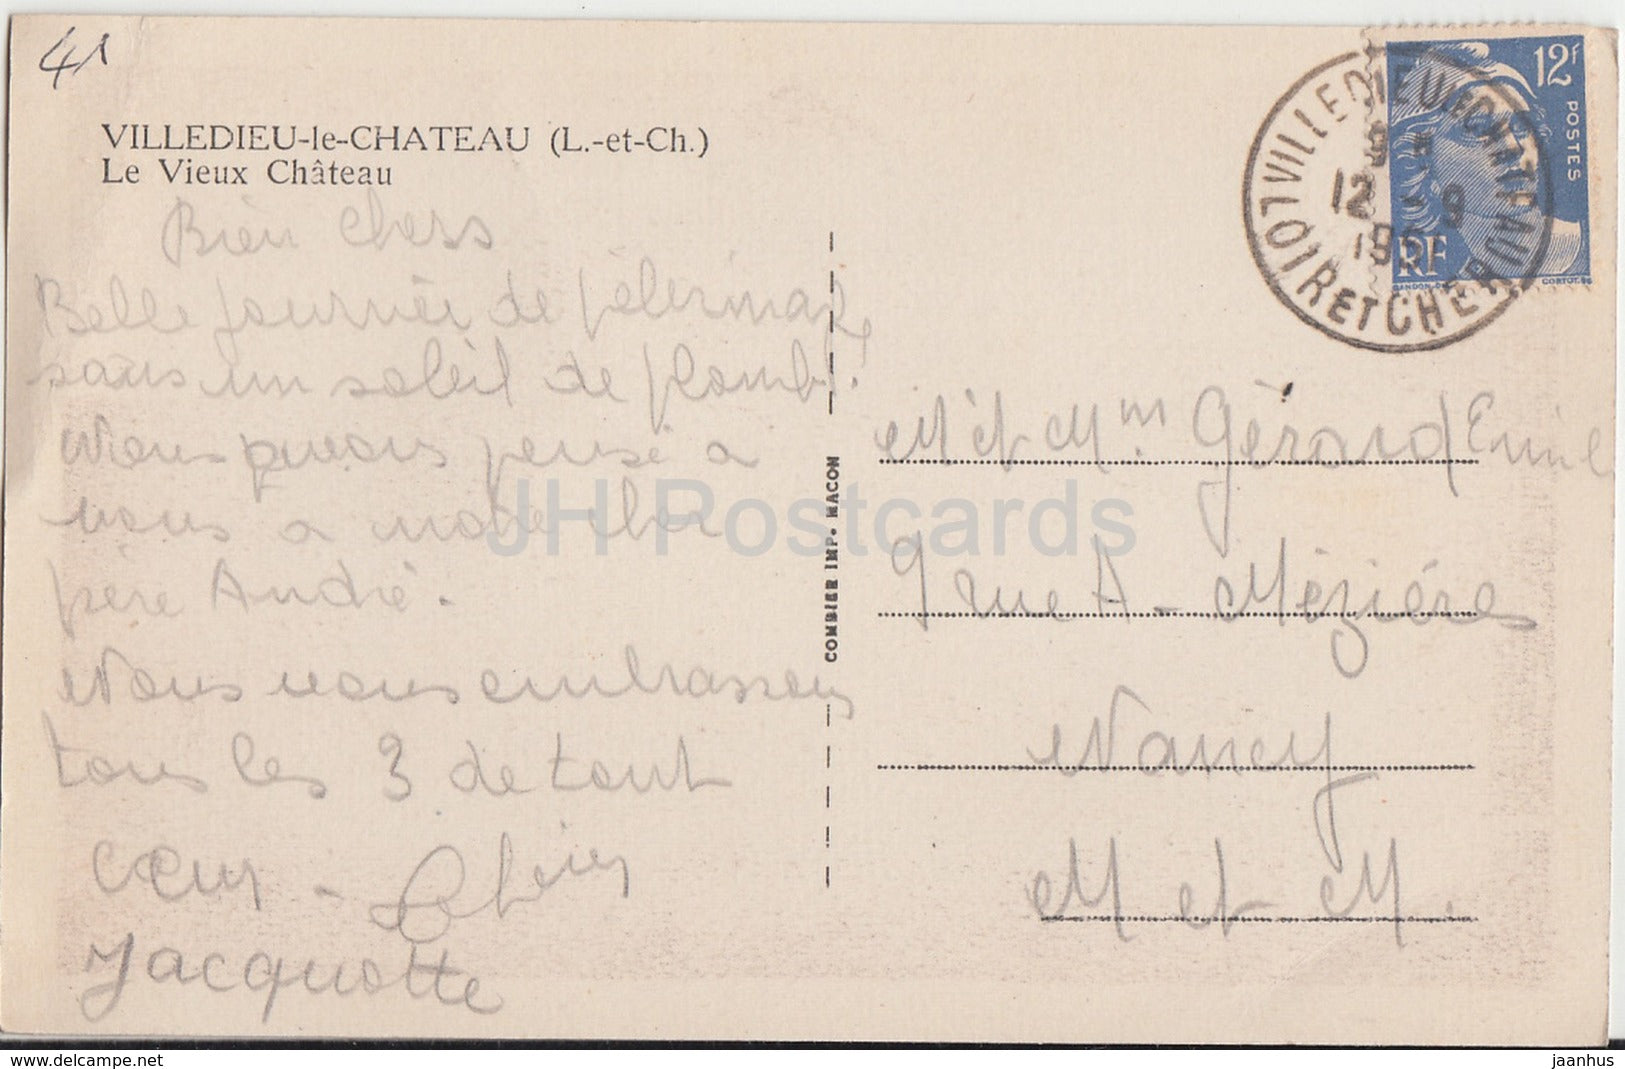 41
VILLEDIEU-le-CHATEAU (L.-et-Ch.)
Le Vieux Château
Bien Chers
Belle journée de pélerinage,
sans un soleil de plomb!
Nous avons pensé à
vous à notre cher
père André.
Nous vous embrassons
tous les 3 de tout
cœur -
Jacquotte
COMBIER IMP. MACON
12F
POSTES
RF
GANDON
CORTOT
VILLEDIEU-CHATEAU
12 - 9
LOIR ET CHER
M et Mm Gérard Emile
9 rue A - Mézières
Nancy
M et M.
JH Postcards
www.delcampe.net
jaanhus